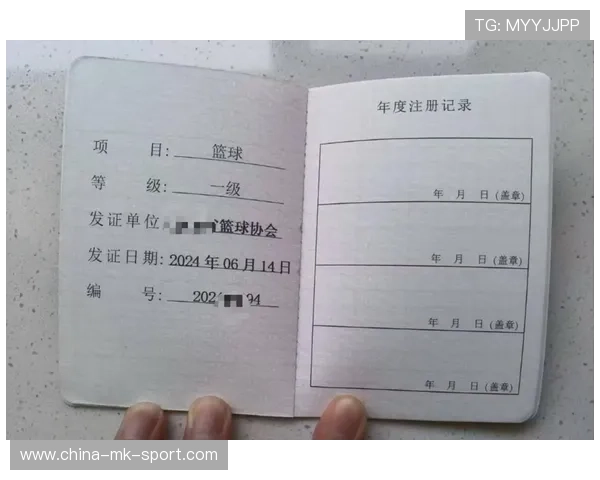 TG: MYYJJPP
项 目: 篮球
等 级: 一级
发证单位 省篮球协会
发证日期: 2024 年 06 月 14 日
编 号: 202 94
年度注册记录
年 月 日 (盖章)
年 月 日 (盖章)
年 月 日 (盖章)
年 月 日 (盖章)
www.china-mk-sport.com/